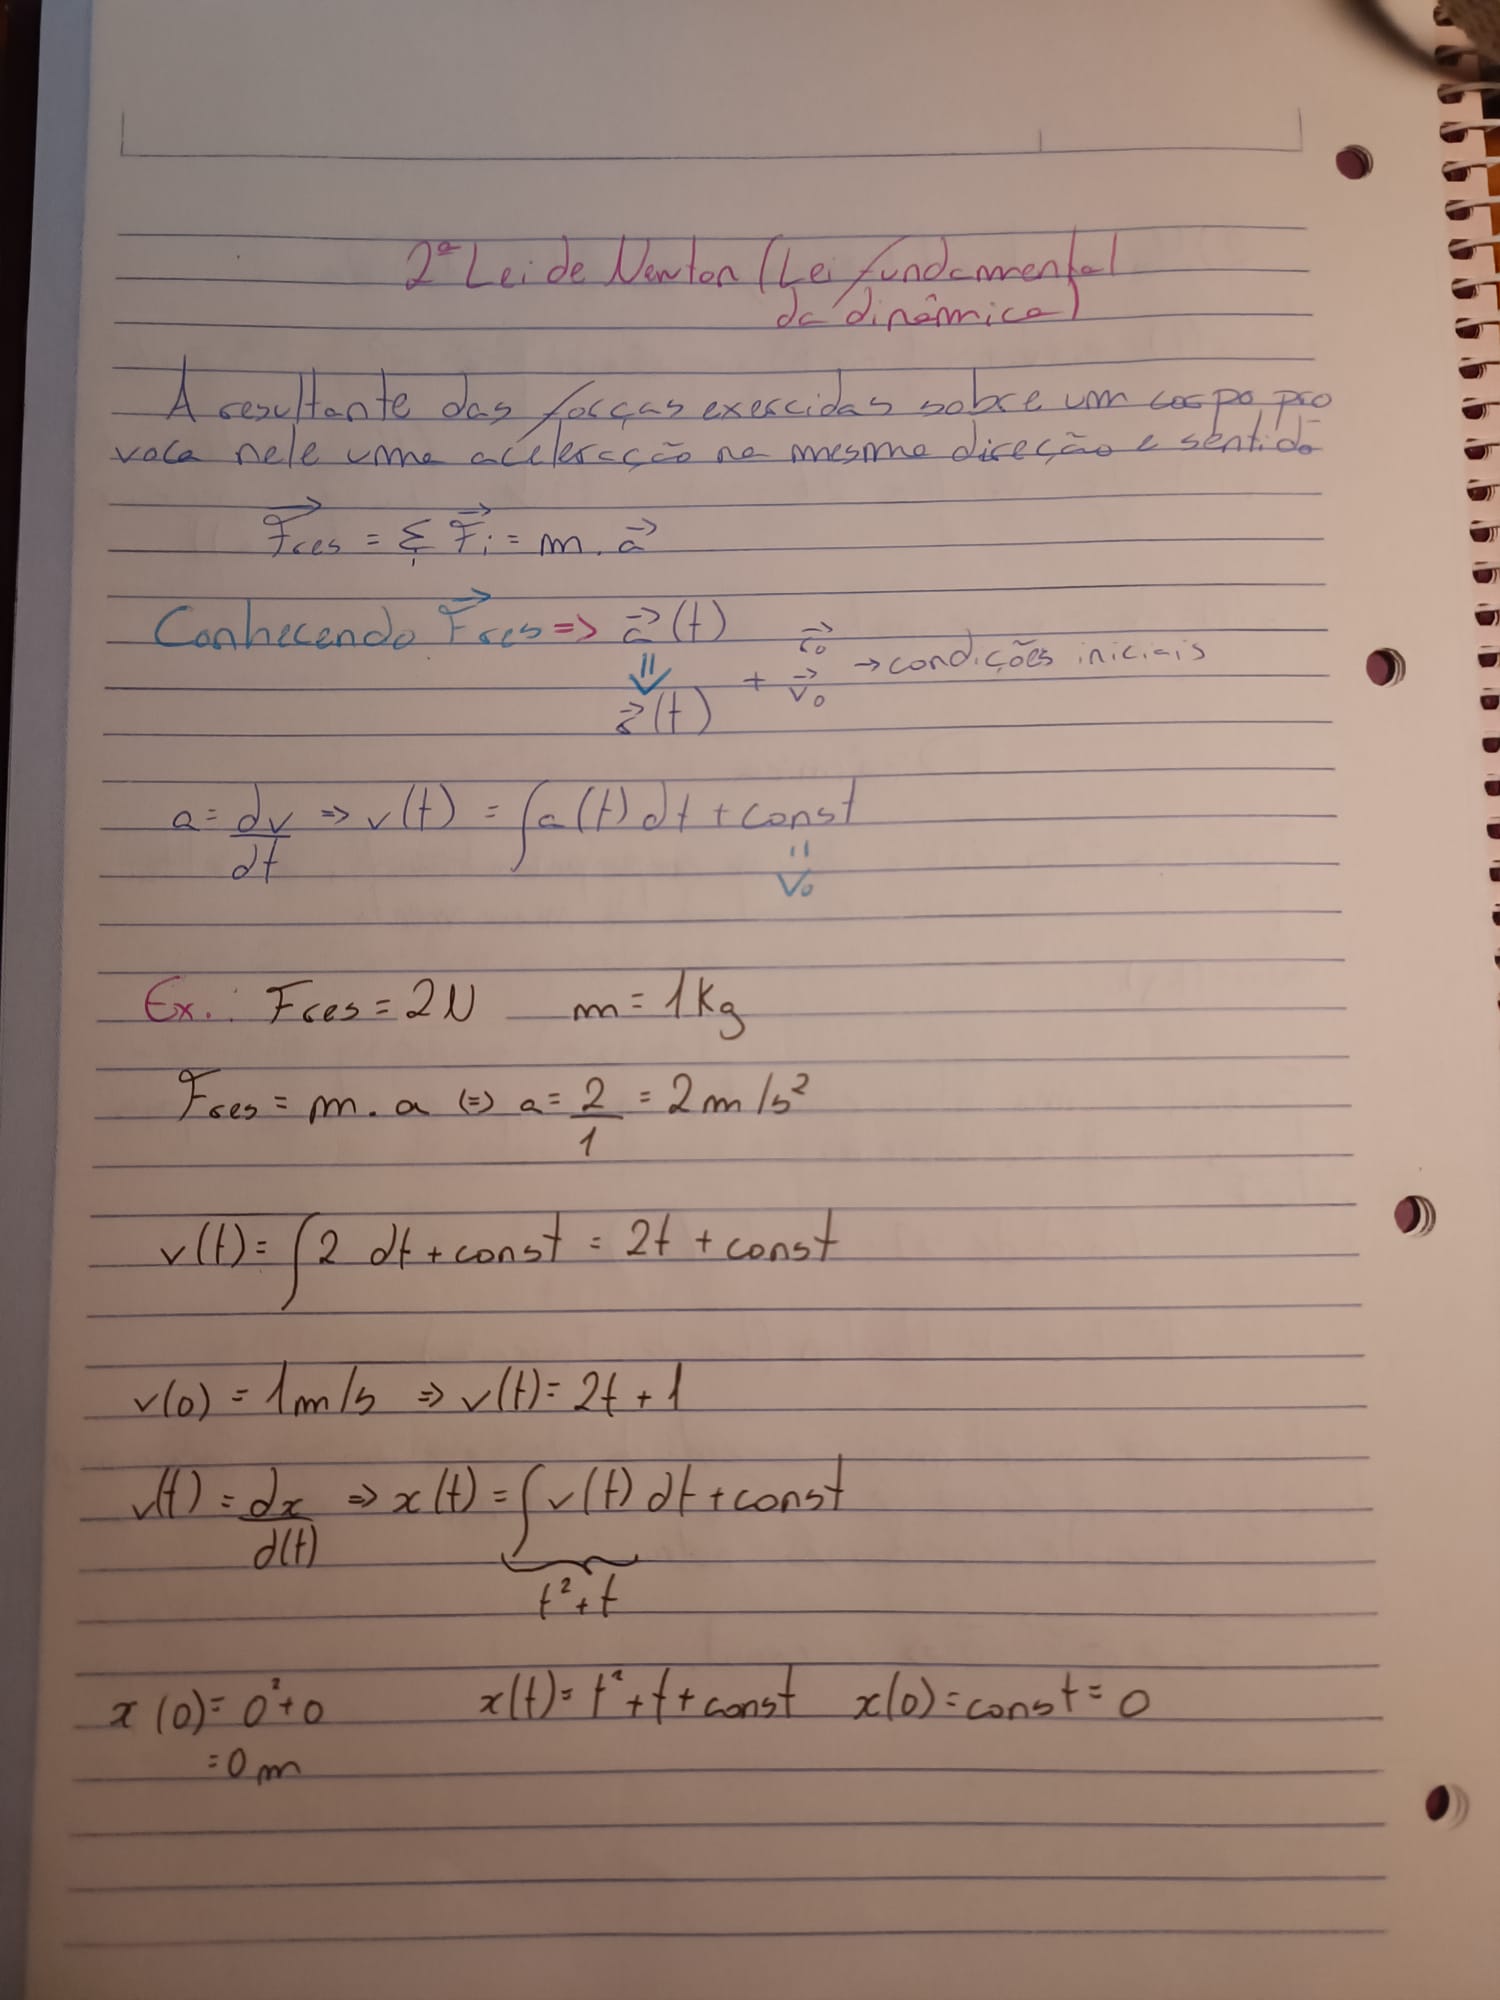 2ª Lei de Newton (Lei fundamental
da dinâmica)
A resultante das forças exercidas sobre um corpo, pro
voca nele uma aceleração na mesma direção e sentido
F⃗res = Σ F⃗i = m . a⃗
i
Conhecendo F⃗res => a⃗(t)
⇓ + r⃗0 v⃗0 → condições iniciais
r⃗(t)
a = dv/dt => v(t) = ∫a(t) dt + const
= v0
Ex.: Fres = 2N m = 1Kg
Fres = m . a (=) a = 2/1 = 2m/s²
v(t) = ∫2 dt + const = 2t + const
v(0) = 1m/s => v(t) = 2t + 1
v(t) = dx/d(t) => x(t) = ∫v(t) dt + const
t² + t
x(0) = 0² + 0 x(t) = t² + t + const x(0) = const = 0
= 0m